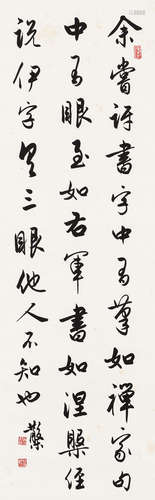 余嘗評書字中有筆如禪家句
中有眼至如右軍書如涅槃經
說伊字具三眼他人不知也